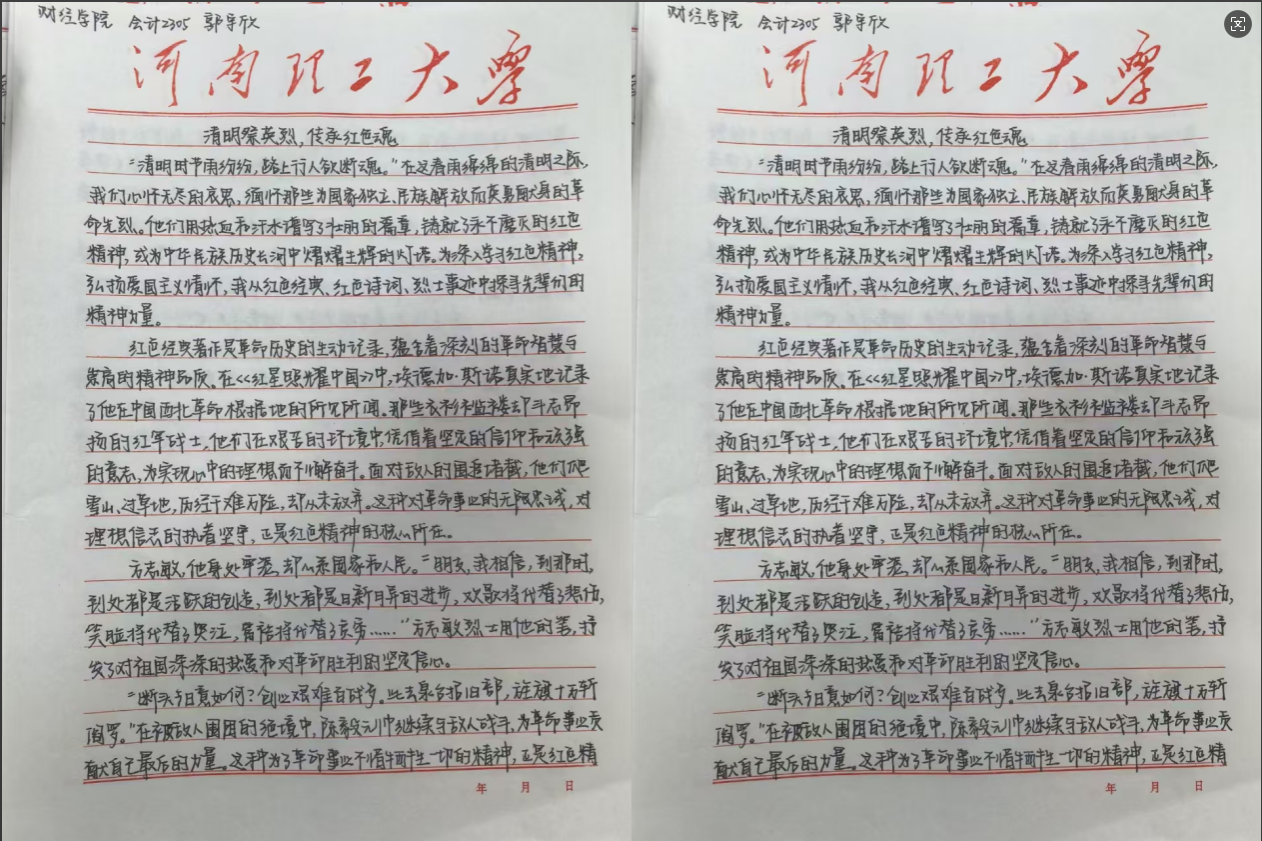 财经学院 会计2305 郭宇欣
河南理工大学
清明祭英烈,传承红色魂
“清明时节雨纷纷,路上行人欲断魂。”在这春雨绵绵的清明之际,
我们心怀无尽的哀思,缅怀那些为国家独立、民族解放而英勇献身的革
命先烈。他们用热血和汗水谱写了壮丽的篇章,铸就了永不磨灭的红色
精神,成为中华民族历史长河中熠熠生辉的灯塔。为深入学习红色精神,
弘扬爱国主义情怀,我从红色经典、红色诗词、烈士事迹中探寻先辈们的
精神力量。
红色经典著作是革命历史的生动记录,蕴含着深刻的革命智慧与
崇高的精神品质。在<<红星照耀中国>>中,埃德加·斯诺真实地记录
了他在中国西北革命根据地的所见所闻。那些衣衫褴褛却斗志昂
扬的红军战士,他们在艰苦的环境中,凭借着坚定的信仰和顽强
的意志,为实现心中的理想而不懈奋斗。面对敌人的围追堵截,他们爬
雪山、过草地,历经千难万险,却从未放弃。这种对革命事业的无限忠诚,对
理想信念的执着坚守,正是红色精神的核心所在。
方志敏,他身处牢笼,却心系国家和人民。“朋友,我相信,到那时,
到处都是活跃的创造,到处都是日新月异的进步,欢歌将代替了悲伤,
笑脸将代替了哭泣,富裕将代替了贫穷……”方志敏烈士用他的笔,抒
发了对祖国深深的热爱和对革命胜利的坚定信心。
“断头今日意如何?创业艰难百战多。此去泉台招旧部,旌旗十万斩
阎罗。”在被敌人围困的绝境中,陈毅元帅继续与敌人战斗,为革命事业贡
献自己最后的力量。这种为了革命事业不惜牺牲一切的精神,正是红色精
年 月 日
财经学院 会计2305 郭宇欣
河南理工大学
清明祭英烈,传承红色魂
“清明时节雨纷纷,路上行人欲断魂。”在这春雨绵绵的清明之际,
我们心怀无尽的哀思,缅怀那些为国家独立、民族解放而英勇献身的革
命先烈。他们用热血和汗水谱写了壮丽的篇章,铸就了永不磨灭的红色
精神,成为中华民族历史长河中熠熠生辉的灯塔。为深入学习红色精神,
弘扬爱国主义情怀,我从红色经典、红色诗词、烈士事迹中探寻先辈们的
精神力量。
红色经典著作是革命历史的生动记录,蕴含着深刻的革命智慧与
崇高的精神品质。在<<红星照耀中国>>中,埃德加·斯诺真实地记录
了他在中国西北革命根据地的所见所闻。那些衣衫褴褛却斗志昂
扬的红军战士,他们在艰苦的环境中,凭借着坚定的信仰和顽强
的意志,为实现心中的理想而不懈奋斗。面对敌人的围追堵截,他们爬
雪山、过草地,历经千难万险,却从未放弃。这种对革命事业的无限忠诚,对
理想信念的执着坚守,正是红色精神的核心所在。
方志敏,他身处牢笼,却心系国家和人民。“朋友,我相信,到那时,
到处都是活跃的创造,到处都是日新月异的进步,欢歌将代替了悲伤,
笑脸将代替了哭泣,富裕将代替了贫穷……”方志敏烈士用他的笔,抒
发了对祖国深深的热爱和对革命胜利的坚定信心。
“断头今日意如何?创业艰难百战多。此去泉台招旧部,旌旗十万斩
阎罗。”在被敌人围困的绝境中,陈毅元帅继续与敌人战斗,为革命事业贡
献自己最后的力量。这种为了革命事业不惜牺牲一切的精神,正是红色精
年 月 日